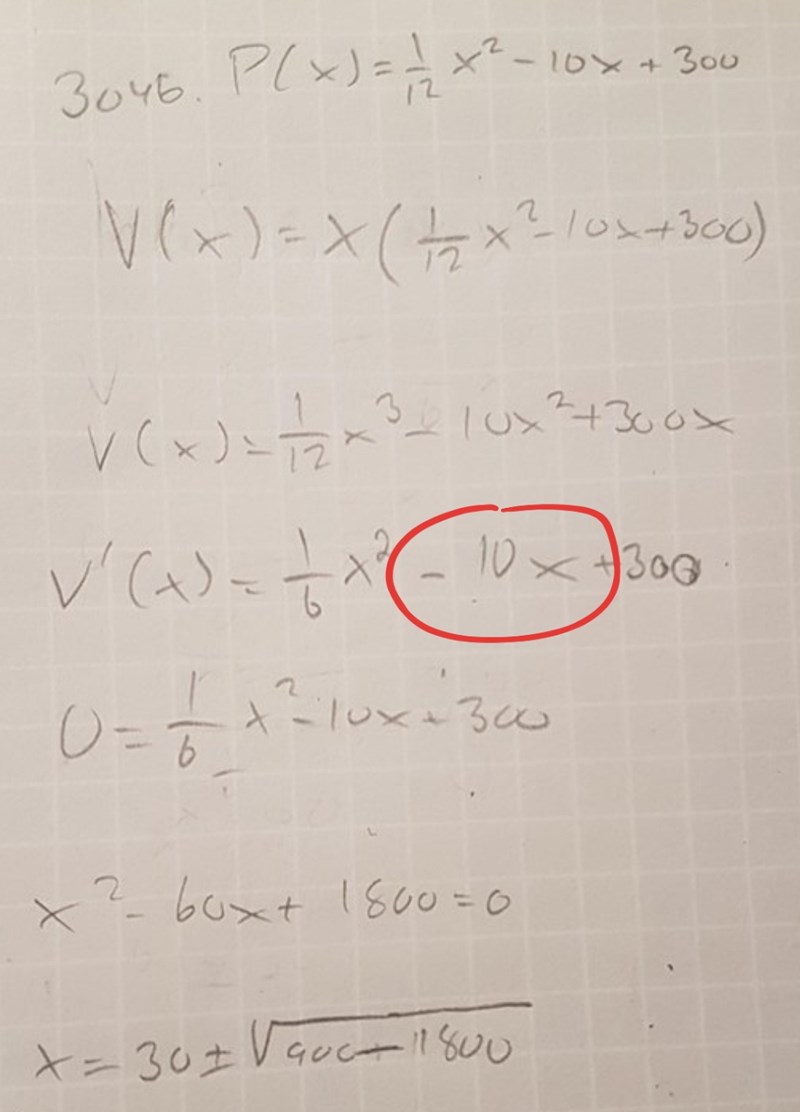 3046. P(x) = 1/12 x² - 10x + 300
V(x) = x(1/12 x² - 10x + 300)
V
V(x) = 1/12 x³ - 10x² + 300x
V'(x) = 1/6 x² - 10x + 300
0 = 1/6 x² - 10x + 300
x² - 60x + 1800 = 0
x = 30 ± √900 - 1800